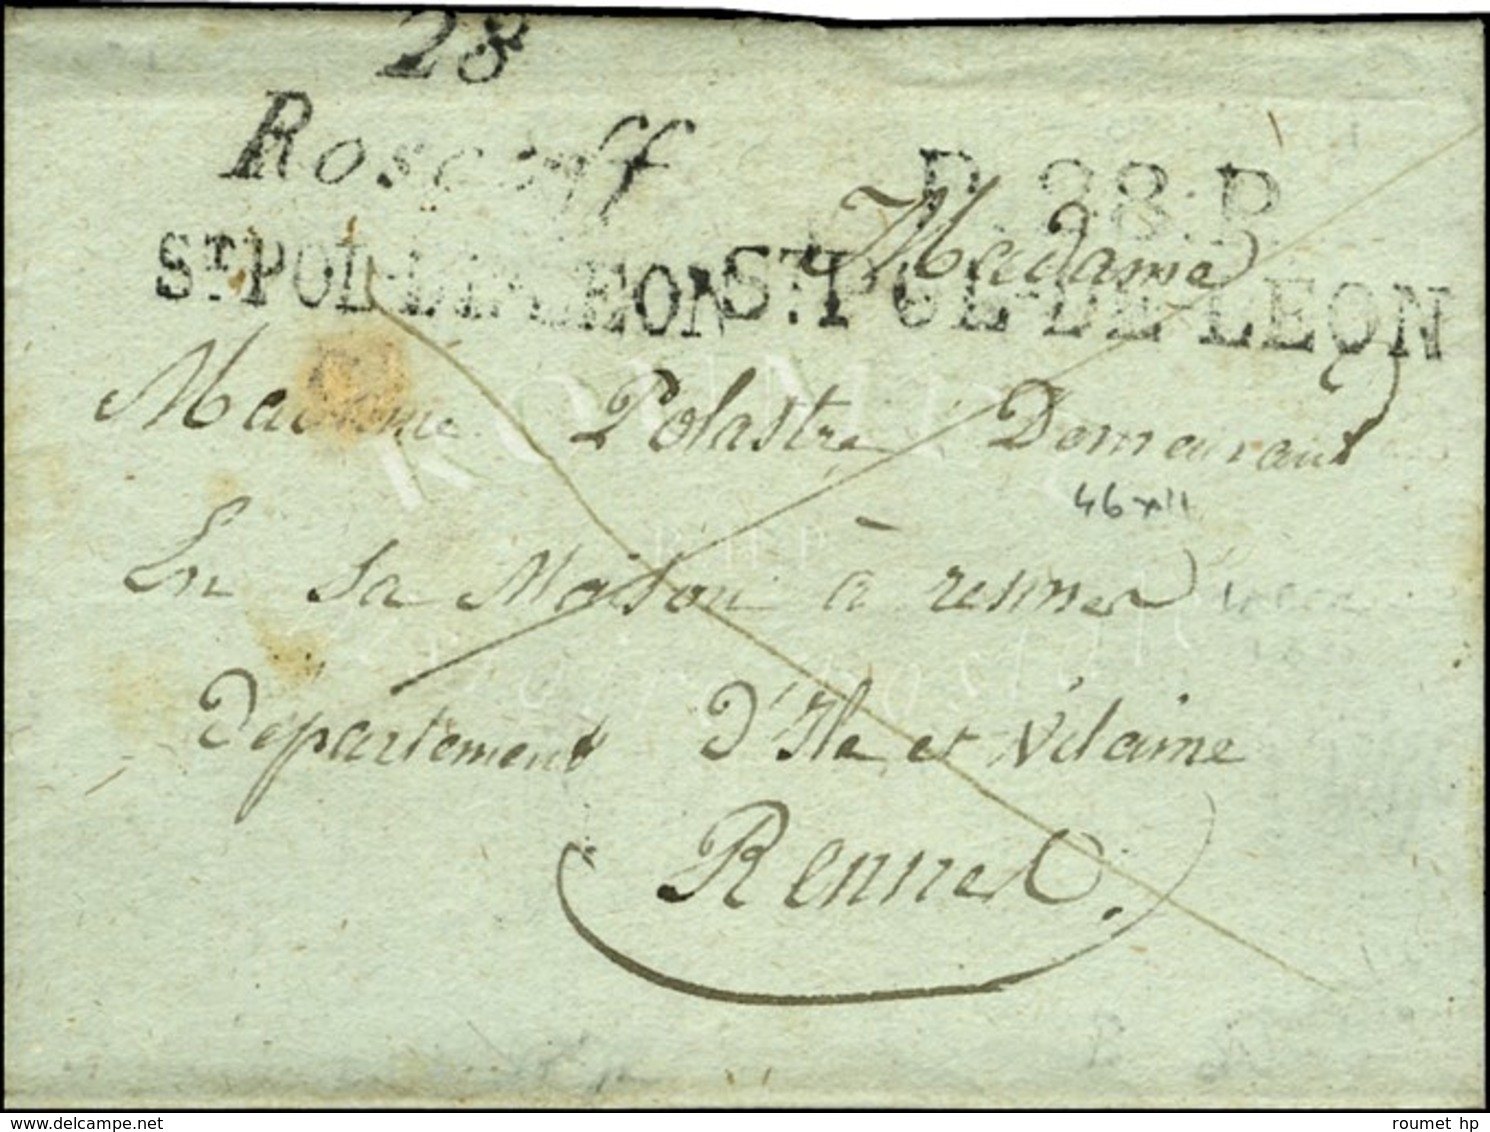 28
Roscoff
St. POL-DE-LEON
P. 28. P.
St. POL-DE-LEON
Madame
Madame Polastre Demeurant
46 x 11
En sa Maison à rennes
Département D'Ile et Vilaine
Rennes.
ROUMET
roumet hp